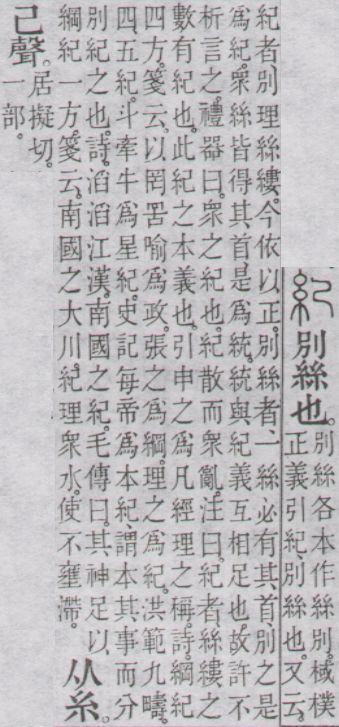 紀別絲也。
別絲各本作絲別。棫樸
正義引紀、別絲也。又云。
紀者、別理絲縷。今依以正。別絲者、一絲必有其首。別之是
爲紀。衆絲皆得其首、是爲統。統與紀義互相足也。故許不
析言之。禮器曰。衆之紀也。紀散而衆亂。注曰。紀者、絲縷之
數有紀也。此紀之本義也。引申之爲凡經理之稱。詩。綱紀
四方。箋云。以罔罟喻爲政。張之爲綱。理之爲紀。洪範九疇。
四、五紀。斗牽牛爲星紀。史記每帝爲本紀。謂本其事而分
別紀之也。詩。滔滔江漢。南國之紀。毛傳曰。其神足以
綱紀一方。箋云。南國之大川。紀理衆水。使不壅滯。
从糸。
己聲。
居擬切。
一部。